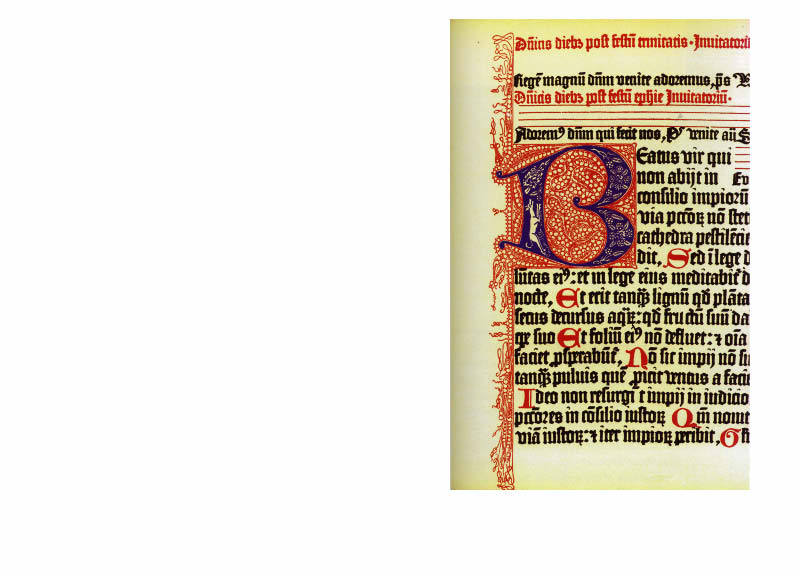 Dñicis diebꝫ post festũ trinitatis · Inuitatoriũ
Regẽ magnũ dñm venite adoremus, p̃s V
Dñicis diebꝫ post festũ ephie Inuitatoriũ ·
Adoremꝰ dñm qui fecit nos, P̃s venite aũ S
Beatus vir qui
non abijt in Ev
consilio impiorũ
via pccõꝝ nõ stet
cathedra pestilẽcie
dit, Sed ĩ lege d
lũtas eiꝰ: et in lege eius meditabit̃ d
nocte, Et erit tanqᷓꝫ lignũ qd̃ plãta
secus decursus aqᷓꝝ: qd̃ fructũ suũ da
tp̃e suo Et foliũ eiꝰ nõ defluet: ⁊ oĩa
faciet, ꝓsperabũt̃, Nõ sic impij nõ si
tanqᷓꝫ puluis quẽ ꝓicit ventus a facie
Ideo non resurgũt impij in iudicio
pccõres in cõsilio iustoꝝ Qm̃ nouit
viã iustoꝝ: ⁊ iter impioꝝ peribit, G